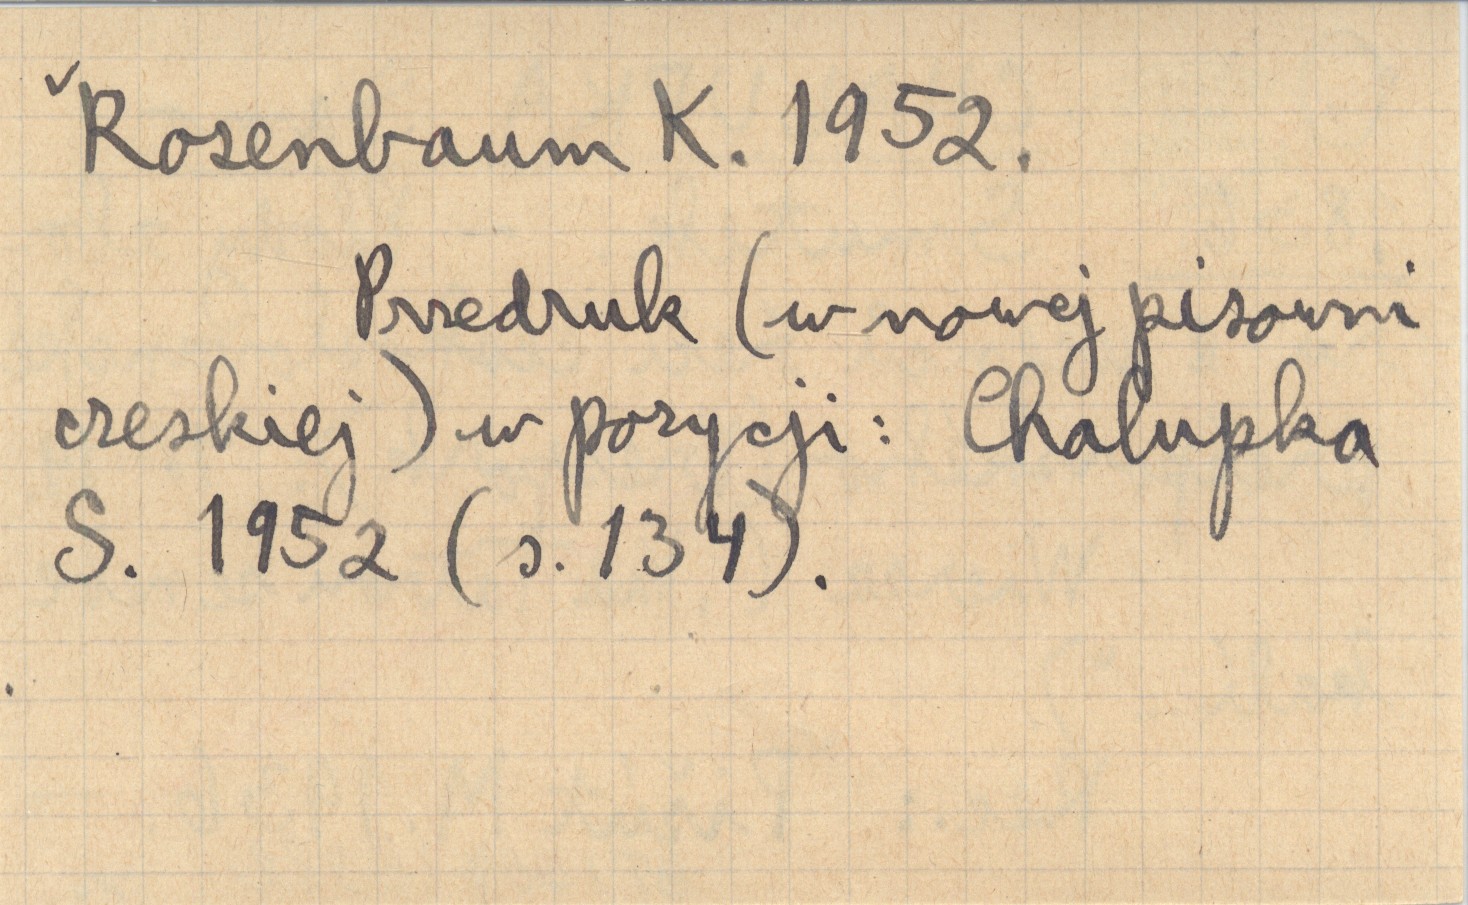 ✓Rosenbaum K. 1952.
Przedruk (w nowej pisowni
czeskiej) w pozycji: Chalupka
S. 1952 (s. 134).